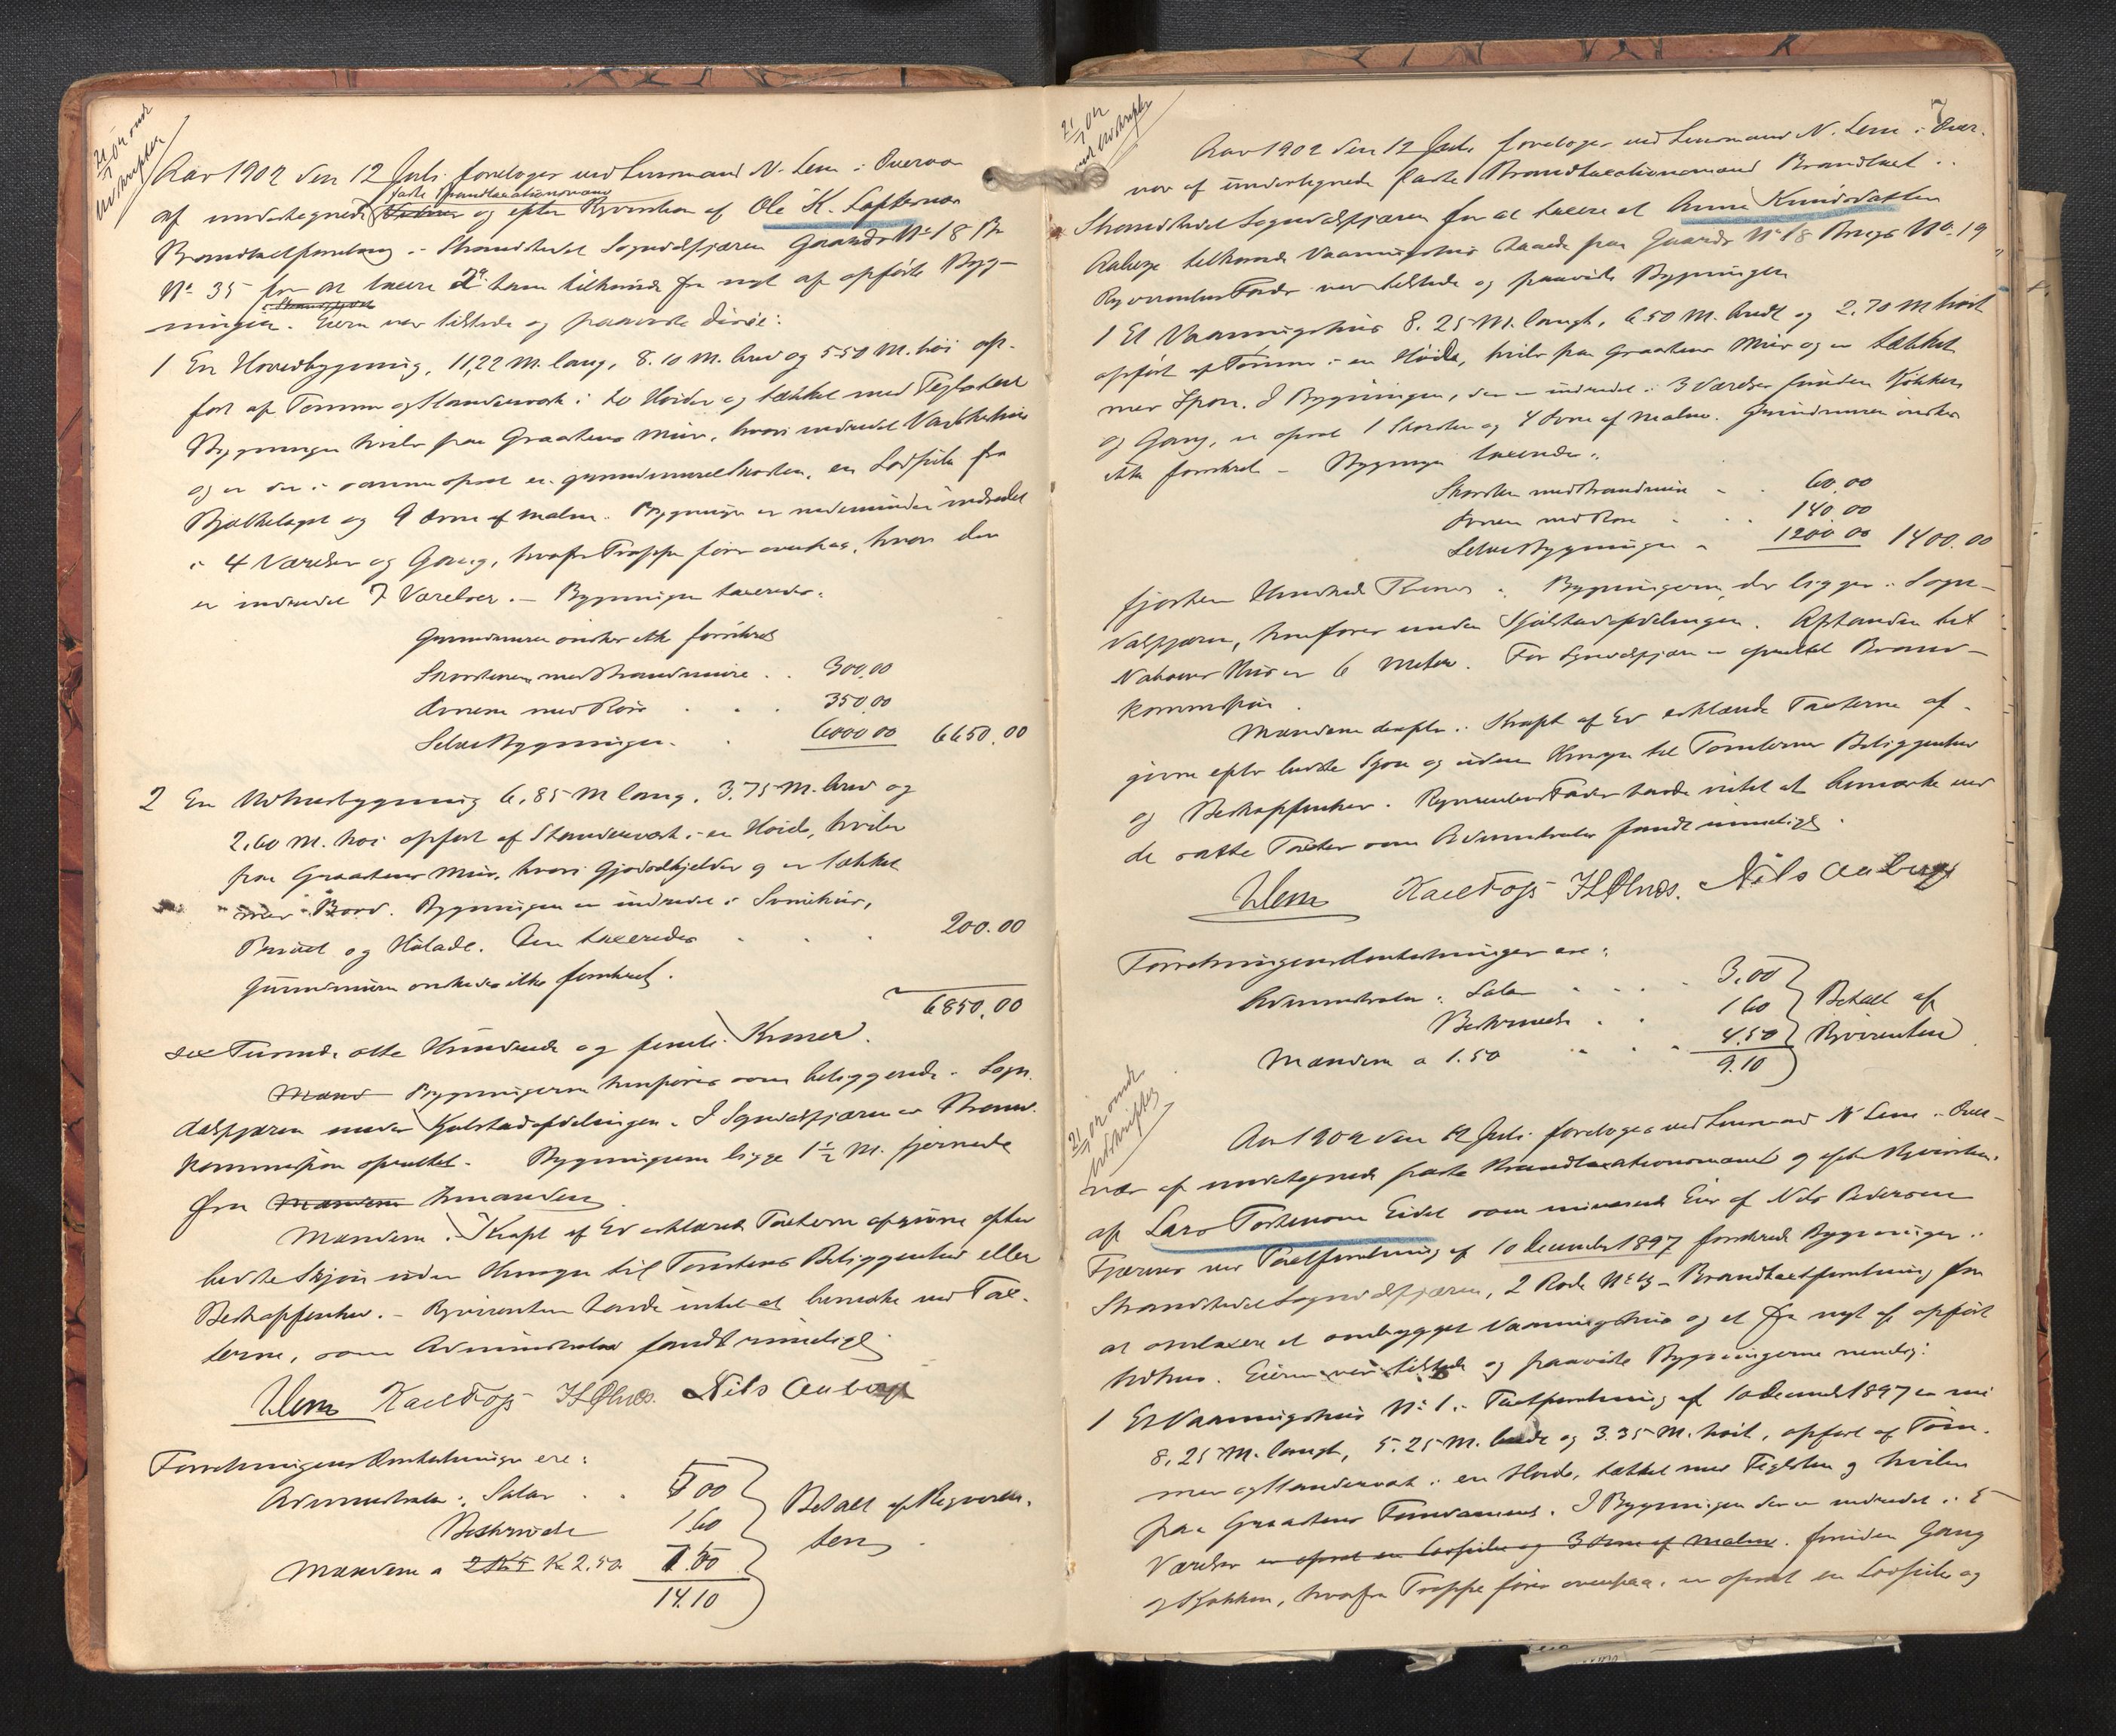 21/7 02 ondt
Udskrifter
Aar 1902 den 12 Juli foretoges ved Lensmand N. Lem i Overvær
faste Brandtaxationsmænd
af undertegnede og efter Rekvisition af Ole K. Loftesnes
Brandtaxtforretning i Strandstedet Sogndalsfjæren Gaards No 18 Br
No 35 for at taxere 2de ham tilhørende fra nyt af opførte Byg-
ninger. Eieren var tilstede og paaviste disse:
1 En Hovedbygning, 11,22 M. lang, 8.10 M. bred og 5.50 M. høi op-
ført af Tømmer og Standerverk i to Høider og tækket med Teglsten
Bygningen hviler paa Graastens Mur, hvori indredet Vaskehus
og er der i samme opsat en grundmuret Skorsten, en Lodpibe fra
Bjælkelaget og 9 Ovne af Malm. Bygningen er nedenunder indredet
i 4 Værelser og Gang, hvorfra Trappe fører ovenpaa, hvori der
er indredet 7 Værelser. – Bygningen taxeredes:
Grundmuren ønskes ikke forsikret
Skorstenen med Brandmure . . 300,00
Ovnene med Rør . . . 350,00
Selve Bygningen . . 6000 00 6650,00
2 En Udhusbygning 6,85 M lang, 3,75 M. bred og
2,60 M. høi opført af Standerverk i en Høide, hviler
paa Graastens Mur, hvori Gjødselkjelder og er tækket
med Bord. Bygningen er indredet i Svinehus,
Privet og Hølade. Den taxeredes . . . 200.00
Grundmuren ønskedes ikke forsikret.
6850,00
sex Tusinde otte Hundrede og femti Kroner.
Mænd Bygningerne henføres som beliggende i Sogn
dalsfjæren under Kjølstadafdelingen. I Sogndalsfjæren er Brand-
kommission oprettet. Bygningerne ligge 1½ M. fjernede
fra Mændene hinanden
Mændene i Kraft af Ed erklærede Taxterne afgivne efter
bedste Skjøn uden Hensyn til Tomtens Beliggenhed eller
Beskaffenhed. – Rekvirenten havde intet at bemerke ved Tax-
terne, som Administrator fandt rimelige
NLem Karl Foss H Ølnæs. Nils Aaberge
Forretningens Omkostninger ere:
Administrator: Salær . . 5 00
Beskrivelse 1 60
Mændene a Kr 2.50 7.50
14.10
Betalt af Rekviren-
ten
7
21/7 02
ondt Udskrifter
Aar 1902 den 12 Juli foretoges ved Lensmand N. Lem i Over-
vær af undertegnede faste Brandtaxationsmænd Brandtaxt i
Strandstedet Sogndalsfjæren for at taxere et Anna Knudsdatter
Aaberge tilhørende Vaaningshus staaende paa Gaards No 18 Brugs No 19
Rekvirentens Fader var tilstede og paaviste Bygningen
1 Et Vaaningshus 8.25 M. langt, 6.50 M. bredt og 2.70 M høit
opført af Tømmer i en Høide, hviler paa Graastens Mur og er tækket
med Spon. I Bygningen, der er indredet i 3 Værelser foruden Kjøkken
og Gang, er opsat 1 Skorsten og 4 Ovne af Malm. Grundmuren ønskes
ikke forsikret – Bygningen taxeredes:
Skorsten med Brandmur . . 60,00
Ovnene med Rør . . . 140 00
Selve Bygningen . 1200 00 1400.00
fjorten Hundrede Kroner. Bygningerne, der ligger i Sogn-
dalsfjæren, henføres under Kjølstadafdelingen. Afstanden til
Naboens Hus er 6 Meter. For Sogndalsfjæren er oprettet Brand-
kommission.
Mændene derefter i Kraft af Ed erklærede Taxterne af-
givne efter bedste Skjøn og uden Hensyn til Tomternes Beliggenhed
og Beskaffenhed. Rekvirentens Fader havde intet at bemærke ved
de satte Taxter som Administrator fandt rimelige.
NLem Karl Foss H Ølnæs. Nils Aaberge
Forretningens Omkostninger ere:
Administrator: Salær . . . . 3,00
Beskrivelse . . 1 60
Mændene a 1.50 . . . 4.50
9.10
Betalt af
Rekvirenten
21/7 02 ondt
Udskrifter
Aar 1902 den 12 Juli foretoges ved Lensmand N Lem i Over-
vær af undertegnede faste Brandtaxationsmænd og efter Rekvisition
af Lars Torstensen Eidet som nuværende Eier af Nils Pedersens
Fjæren ved Taxtforretning af 10 December 1897 forsikrede Bygninger i
Strandstedet Sogndalsfjæren, 2 Rode No – Brandtaxtforretning for
at omtaxere et ombygget Vaaningshus og et fra nyt af opført
Udhus. Eieren var tilstede og paaviste Bygningerne nemlig:
1 Et Vaaningshus No 1 i Taxtforretning af 10 December 1897 er nu
8,25 M. langt, 5.25 M. bredt og 3.35 M. høit, opført af Tøm-
mer og Standerverk i en Høide, tækket med Teglsten og hviler
paa Graastens Fundament. I Bygningen der er indredet i 5
Værelser er opsat en Lodpibe og 3 Ovne af Malm. foruden Gang
og Kjøkken, hvorfra Trappe fører ovenpaa, er opsat en Lodpibe og